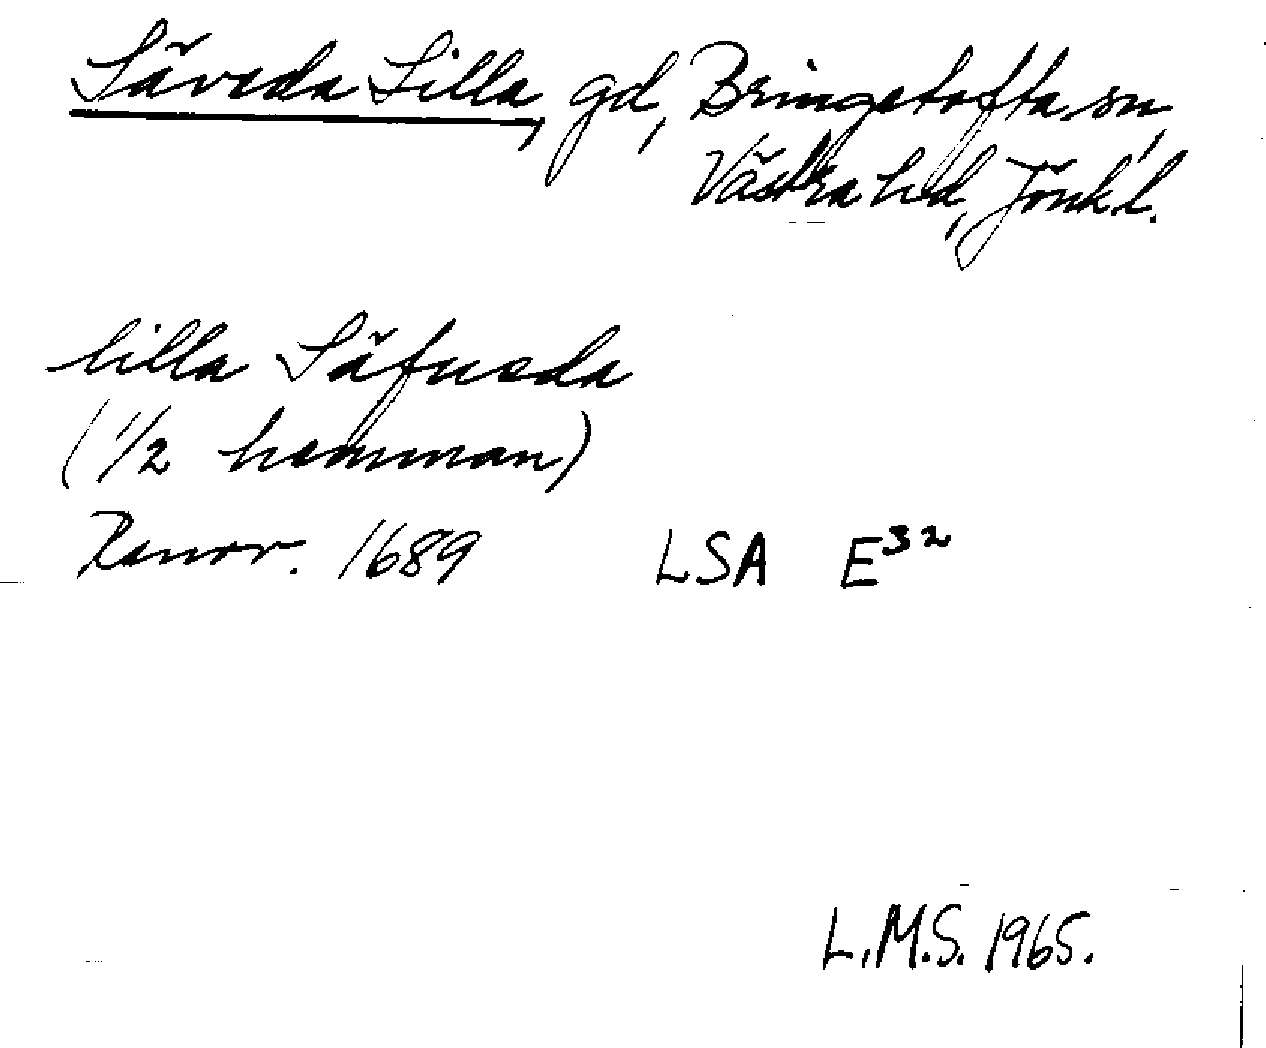 Säveda Lilla, gd, Bringetofta sn,
Västra hd, Jönk. l.
lilla Säfueda
(1/2 hemman)
Renov. 1689 LSA E³²
L.M.S. 1965.